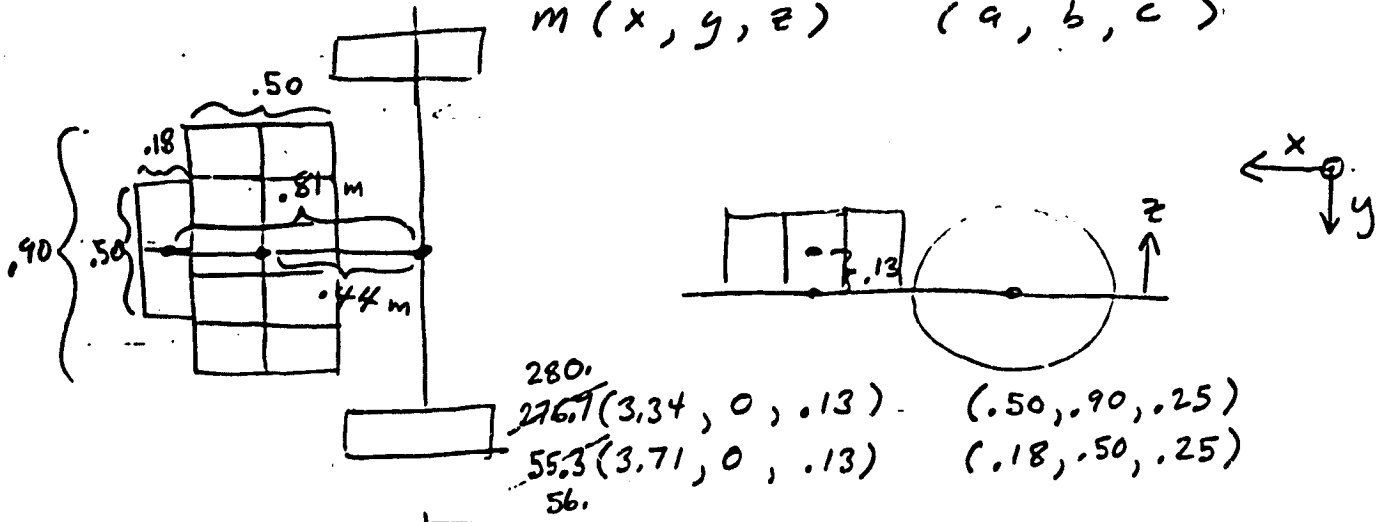 m (x, y, z) (a, b, c)
.50
.18
.81 m
.90
.50
.44 m
x
y
z
.13
280.
276.9 (3.34, 0, .13) (.50, .90, .25)
55.3 (3.71, 0, .13) (.18, .50, .25)
56.